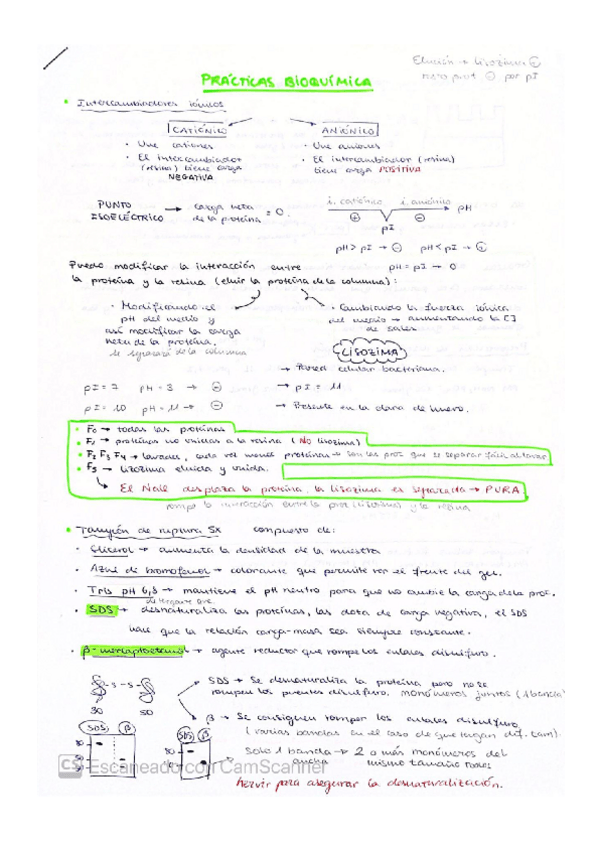 Elución → Lisozima ⊕
resto prot ⊖ por pI
PRÁCTICAS BIOQUÍMICA
• Intercambiadores iónicos
CATIÓNICO ANIÓNICO
• Une cationes • Une aniones
• El intercambiador • El intercambiador (resina)
(resina) tiene carga tiene carga POSITIVA
NEGATIVA
PUNTO → carga neta = 0.
ISOELÉCTRICO de la proteína
i. catiónico i. aniónico
⊕ ⊖ pH
pI
pH > pI → ⊖ pH < pI → ⊕
pH = pI → 0
Puedo modificar la interacción entre
la proteína y la resina (eluir la proteína de la columna):
• Modificando el • Cambiando la fuerza iónica
pH del medio y del medio → aumentando la [ ]
así modificar la carga de sales
neta de la proteína.
se separará de la columna
LISOZIMA
→ Pared celular bacteriana.
pI = 7 pH = 3 → ⊕ → pI = 11
pI = 10 pH = 11 → ⊖ → Presente en la clara de huevo.
• F0 → todas las proteínas
• F1 → proteínas no unidas a la resina (NO lisozima)
• F2 F3 F4 → lavados, cada vez menos proteínas → son las prot. que se separan
• F5 → lisozima eluida y unida.
→ El NaCl desplaza la proteína, la lisozima es separada → PURA
rompe la interacción entre la prot (lisozima) y la resina
• Tampón de ruptura 5x compuesto de:
• Glicerol → aumenta la densidad de la muestra
• Azul de bromofenol → colorante que permite ver el frente del gel.
• Tris pH 6,8 → mantiene el pH neutro para que no cambie la carga de la prot.
• SDS → desnaturaliza las proteínas, las dota de carga negativa, el SDS
hace que la relación carga-masa sea siempre constante.
• β-mercaptoetanol → agente reductor que rompe los enlaces disulfuro.
-S-S-
30 50
SDS → Se desnaturaliza la proteína pero no se
rompen los puentes disulfuro. monómeros juntos (1 banda)
β → Se consiguen romper los enlaces disulfuro
(varias bandas en el caso de que tengan dif. tam)
SDS β SDS β
Solo 1 banda → 2 o más monómeros del
ancha mismo tamaño
CS Escaneado con CamScanner
hervir para asegurar la desnaturalización.